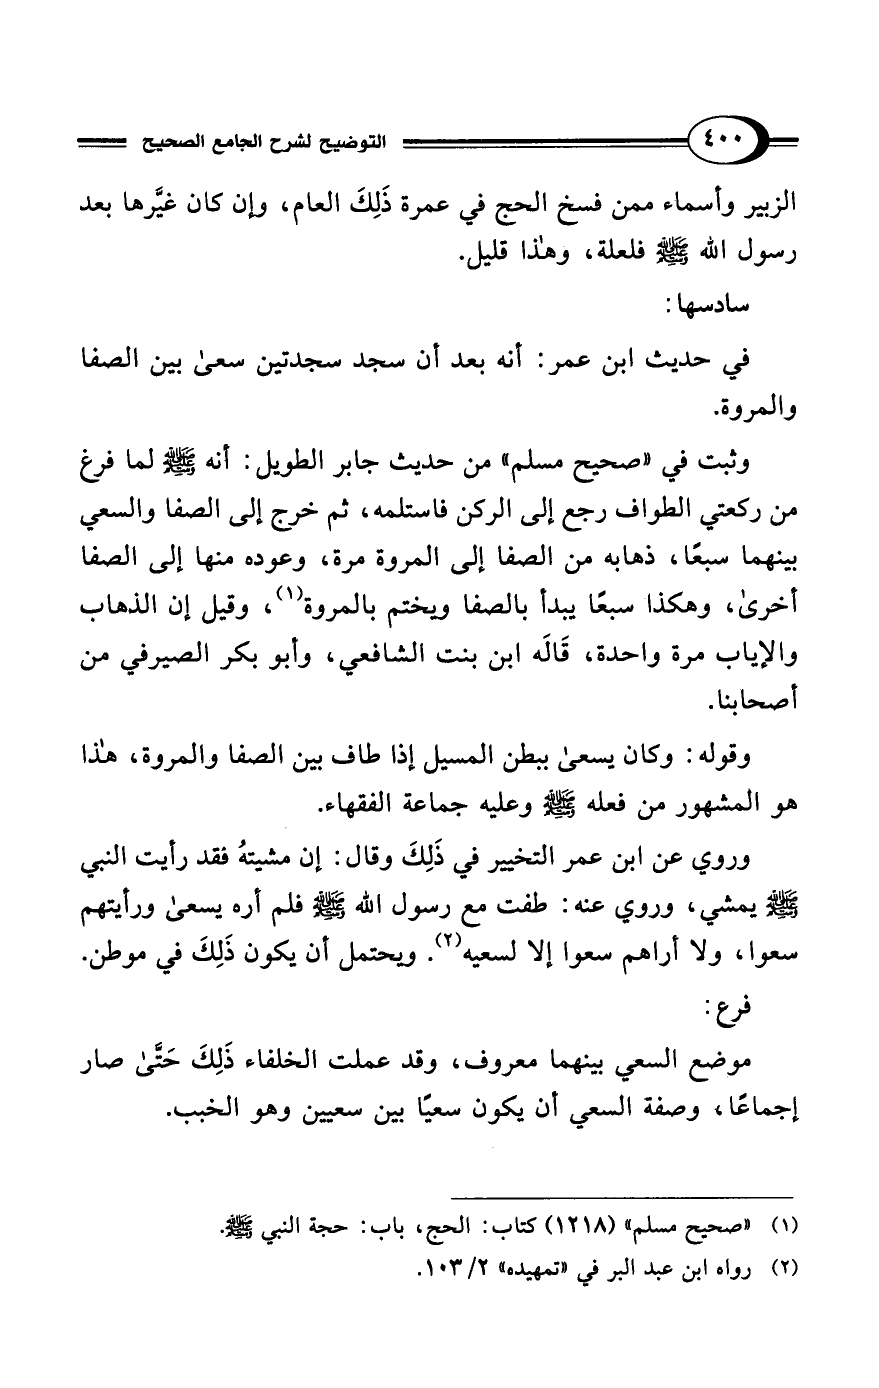 ٤٠٠ التوضيح لشرح الجامع الصحيح
الزبير وأسماء ممن فسخ الحج في عمرة ذَلِكَ العام، وإن كان غيَّرها بعد
رسول الله ﷺ فلعلة، وهذا قليل.
سادسها:
في حديث ابن عمر: أنه بعد أن سجد سجدتين سعىٰ بين الصفا
والمروة.
وثبت في «صحيح مسلم» من حديث جابر الطويل: أنه ﷺ لما فرغ
من ركعتي الطواف رجع إلى الركن فاستلمه، ثم خرج إلى الصفا والسعي
بينهما سبعًا، ذهابه من الصفا إلى المروة مرة، وعوده منها إلى الصفا
أخرىٰ، وهكذا سبعًا يبدأ بالصفا ويختم بالمروة(١)، وقيل إن الذهاب
والإياب مرة واحدة، قَالَه ابن بنت الشافعي، وأبو بكر الصيرفي من
أصحابنا.
وقوله: وكان يسعىٰ ببطن المسيل إذا طاف بين الصفا والمروة، هٰذا
هو المشهور من فعله ﷺ وعليه جماعة الفقهاء.
وروي عن ابن عمر التخيير في ذَلِكَ وقال: إن مشيتهُ فقد رأيت النبي
ﷺ يمشي، وروي عنه: طفت مع رسول الله ﷺ فلم أره يسعىٰ ورأيتهم
سعوا، ولا أراهم سعوا إلا لسعيه(٢). ويحتمل أن يكون ذَلِكَ في موطن.
فرع:
موضع السعي بينهما معروف، وقد عملت الخلفاء ذَلِكَ حَتَّىٰ صار
إجماعًا، وصفة السعي أن يكون سعيًا بين سعيين وهو الخبب.
(١) «صحيح مسلم» (١٢١٨) كتاب: الحج، باب: حجة النبي ﷺ.
(٢) رواه ابن عبد البر في «تمهيده» ٢/ ١٠٣.